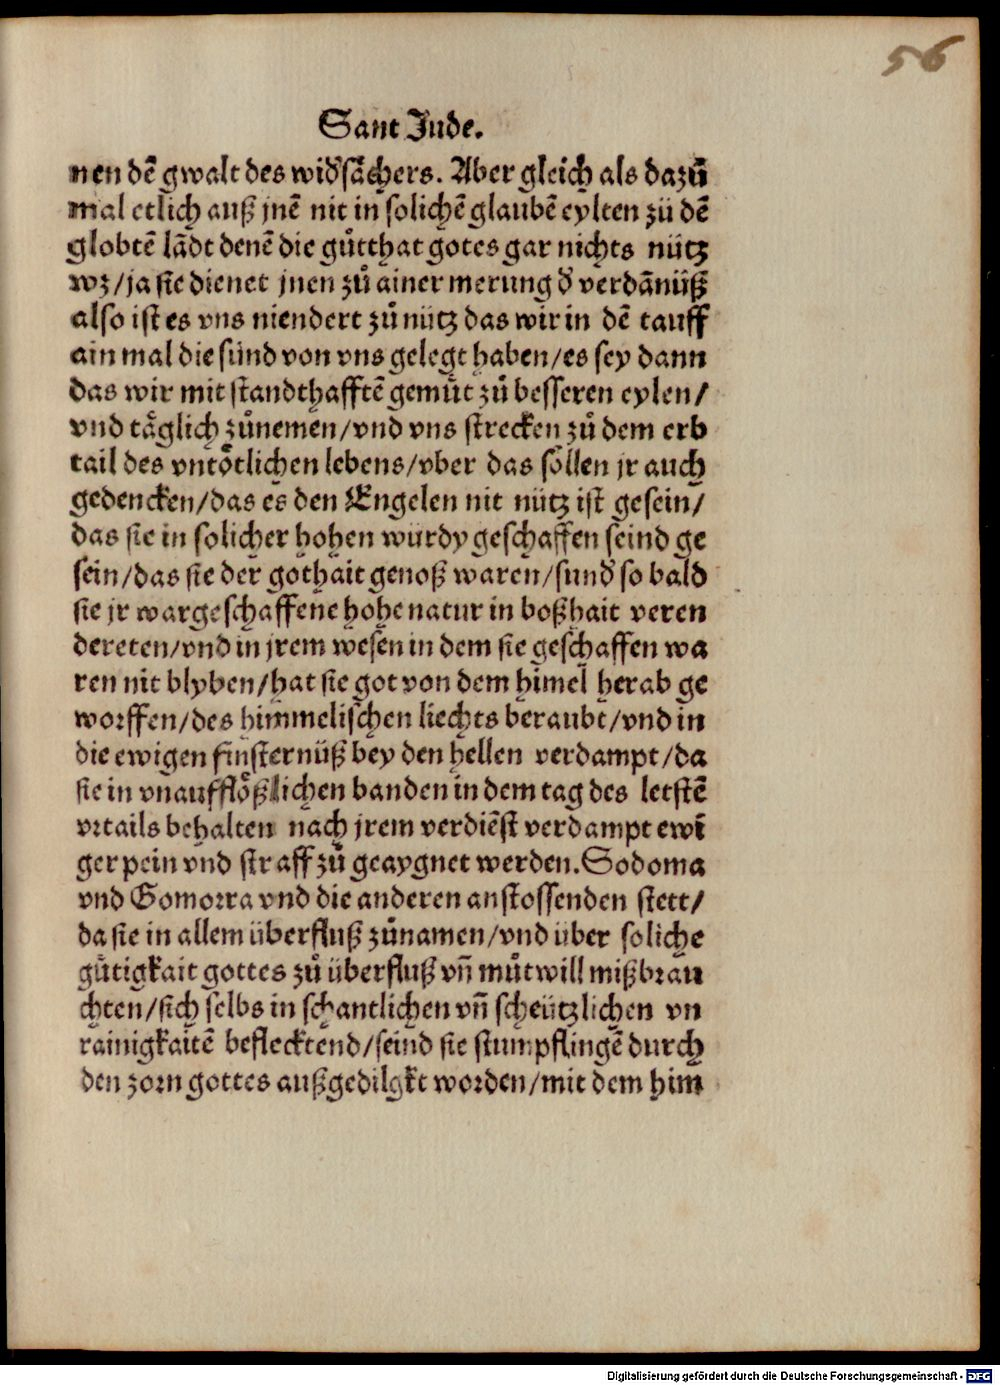 56
Sant Jude.
nen dē gwalt des wid̕sāchers. Aber gleich als dazů
mal etlich auß jnē nit in solichē glaubē eylten zů dē
globtē lādt denē die gůtthat gotes gar nichts nütz
wz/ja sie dienet jnen zů ainer merung d̕ verdānüß
also ist es vns niendert zů nütz das wir in dē tauff
ain mal die sünd von vns gelegt haben/es sey dann
das wir mit standthafftē gemüt zů besseren eylen/
vnd täglich zůnemen/vnd vns strecken zů dem erb
tail des vntötlichen lebens/vber das söllen jr auch
gedencken/das es den Engelen nit nütz ist gesein/
das sie in solicher hohen würdy geschaffen seind ge
sein/das sie der gothait genoß waren/sund̕ so bald
sie jr wargeschaffene hohe natur in boßhait veren
dereten/vnd in jrem wesen in dem sie geschaffen wa
ren nit blyben/hat sie got von dem himel herab ge
worffen/des himmelischen liechts beraubt/vnd in
die ewigen finsternüß bey den hellen verdampt/da
sie in vnaufflößlichen banden in dem tag des letstē
vrtails behalten nach jrem verdiēst verdampt ewi
ger pein vnd straff zů geaygnet werden. Sodoma
vnd Gomorra vnd die anderen anstossenden stett/
da sie in allem überfluß zůnamen/vnd über soliche
gütigkait gottes zů überfluß vñ můtwill mißbrau
chten/sich selbs in schantlichen vñ scheützlichen vn
rainigkaitē beflecktend/seind sie stumpflingē durch
den zorn gottes außgedilgkt worden/mit dem him
Digitalisierung gefördert durch die Deutsche Forschungsgemeinschaft - DFG